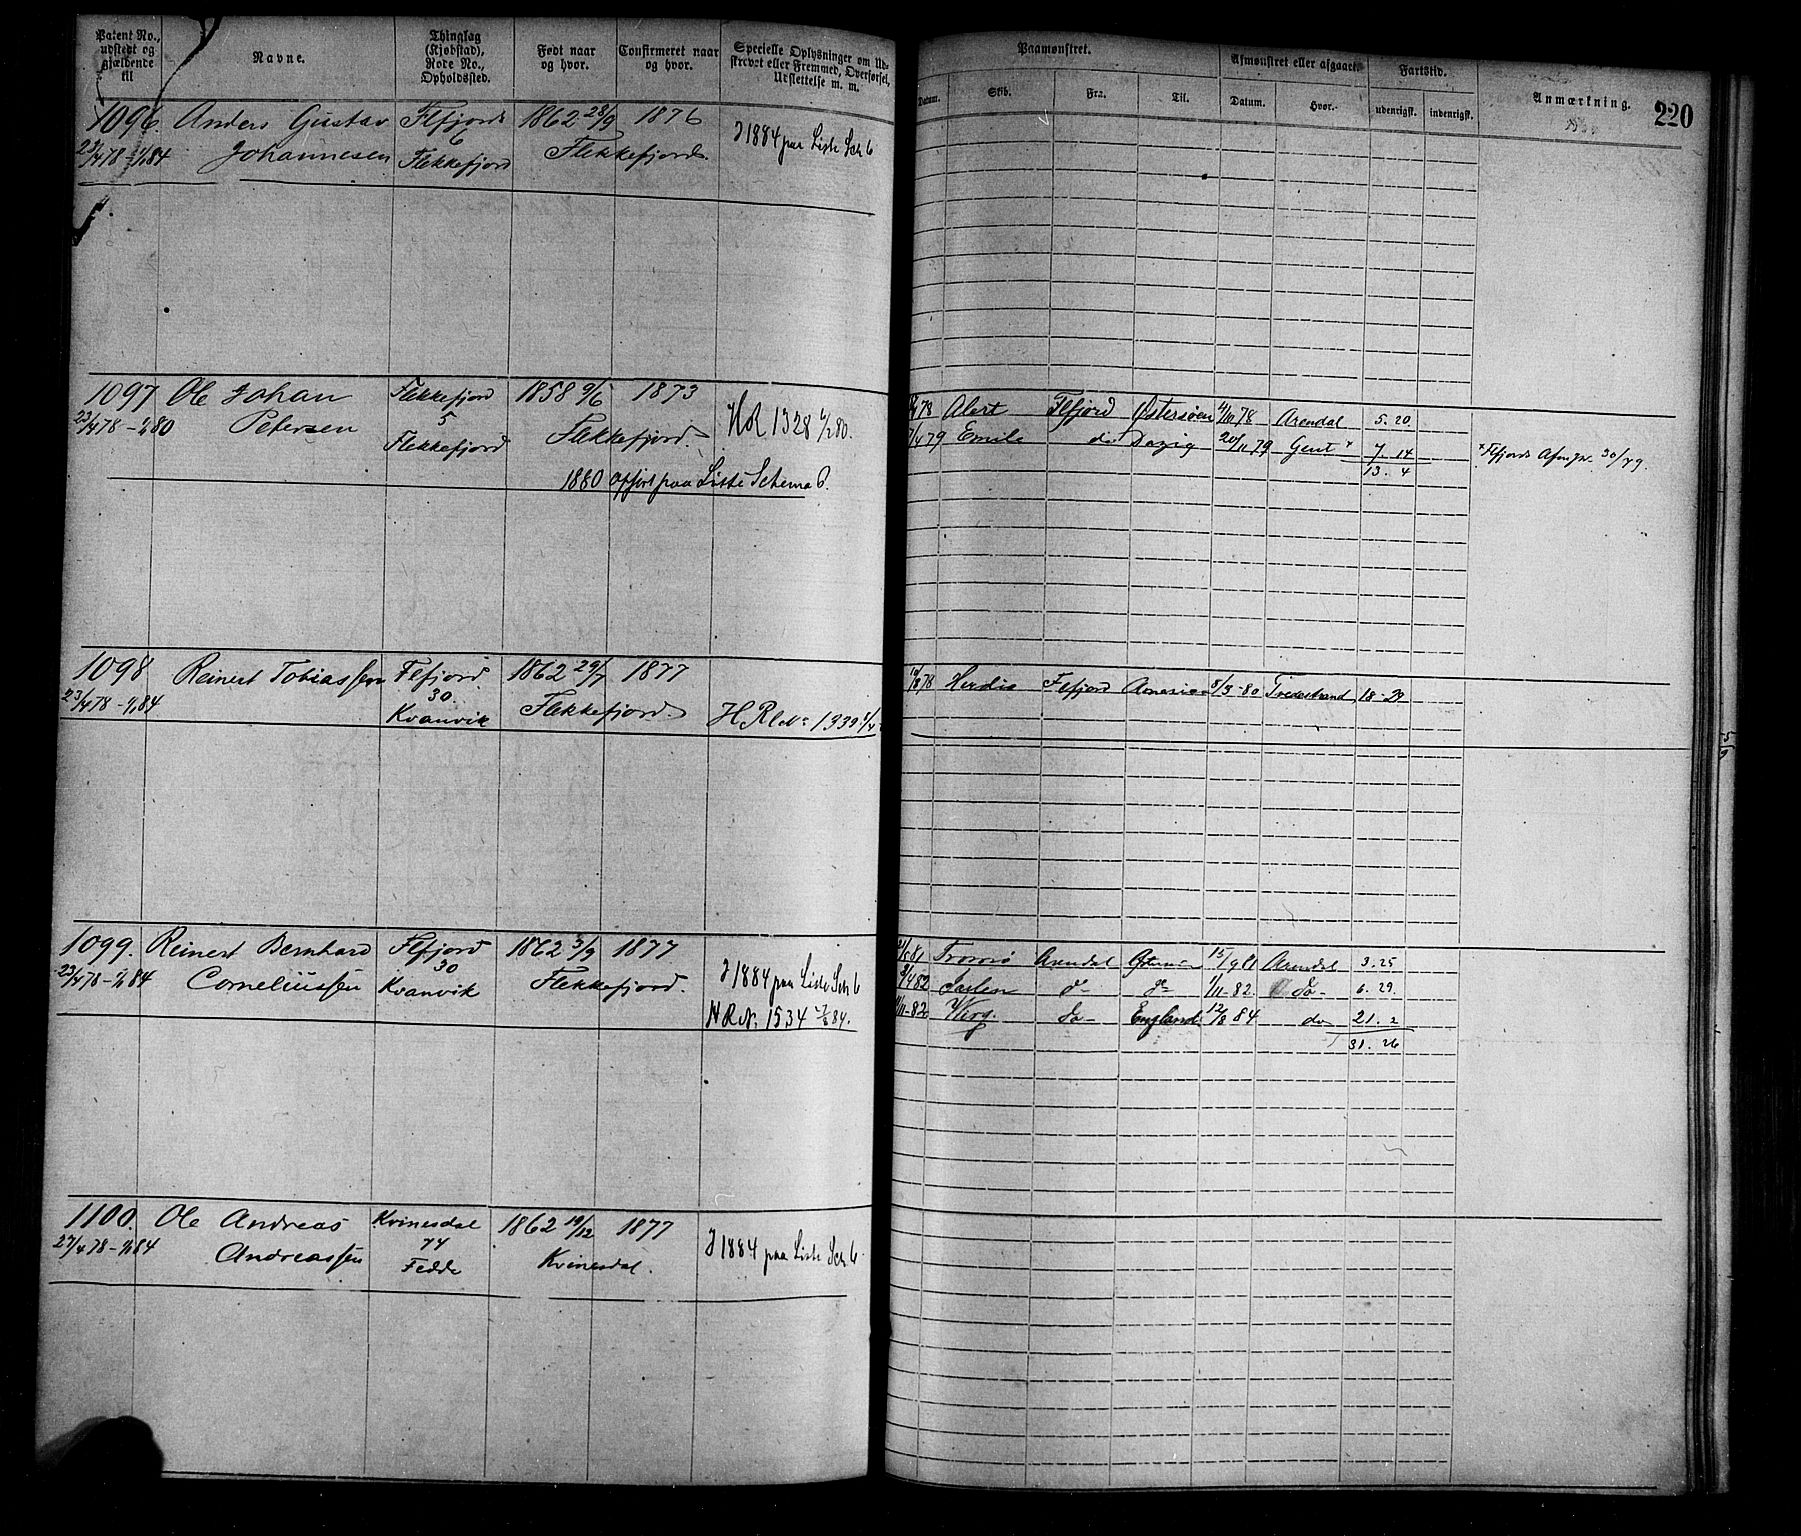 Patent No., udstedt og gjældende til
Navne.
Thinglag (Kjøbstad), Rode No., Opholdssted.
Født naar og hvor.
Confirmeret naar og hvor.
Specielle Oplysninger om Udskrevet eller Fremmed, Overførsel, Udslettelse m. m.
Paamønstret.
Datum.
Skib.
Fra.
Til.
Afmønstret eller afgaaet.
Datum.
Hvor.
Fartstid.
udenrigsk.
indenrigsk.
Anmærkning.
220
1096. Anders Gustav Flfjord 1862 28/9 1876
23/4 78 - 1/1 84 Johannesen 6 Flekkefjord Flekkefjord.
J 1884 paa Liste Sch 6
1097 Ole Johan Flekkefjord 1858 9/6 1873
23/4 78 - 80 Petersen 5 Flekkefjord Flekkefjord.
H R 1328 80.
1880 opført paa Liste Schema 6.
78 Alert Flfjord Østersøen 78 Arendal 5. 20.
79 Emile do Dazig 20/11 79 Gent * 7. 14
13. 4
* Flfjords 30/ 79.
1098 Reinert Tobiassen Flfjord. 1862 29/7 1877
23/4 78 - 1/1 84 30. Kvanvik Flekkefjord.
H R No 1339
78 Herdis Flfjord 8/3 - 80 Tvedestrand 18 - 29
1099. Reinert Bernhard Flfjord 1862 3/9 1877
23/4 78 - 1/1 84 Corneliussen 30 Kvanvik Flekkefjord.
J 1884 paa Liste Sch 6
H R No. 1534 84.
81 Tromø Arendal 15/9 81 Arendal 3. 25
4 82 do do 11. 82. do 6. 29.
11 - 82 do England. 12/8 84 do 21. 2
31. 26
1100. Ole Andreas Kvinesdal 1862 19/12 1877
27/4 78 - 1/1 84 Andreassen 74 Fedde Kvinesdal.
J 1884 paa Liste Sch 6